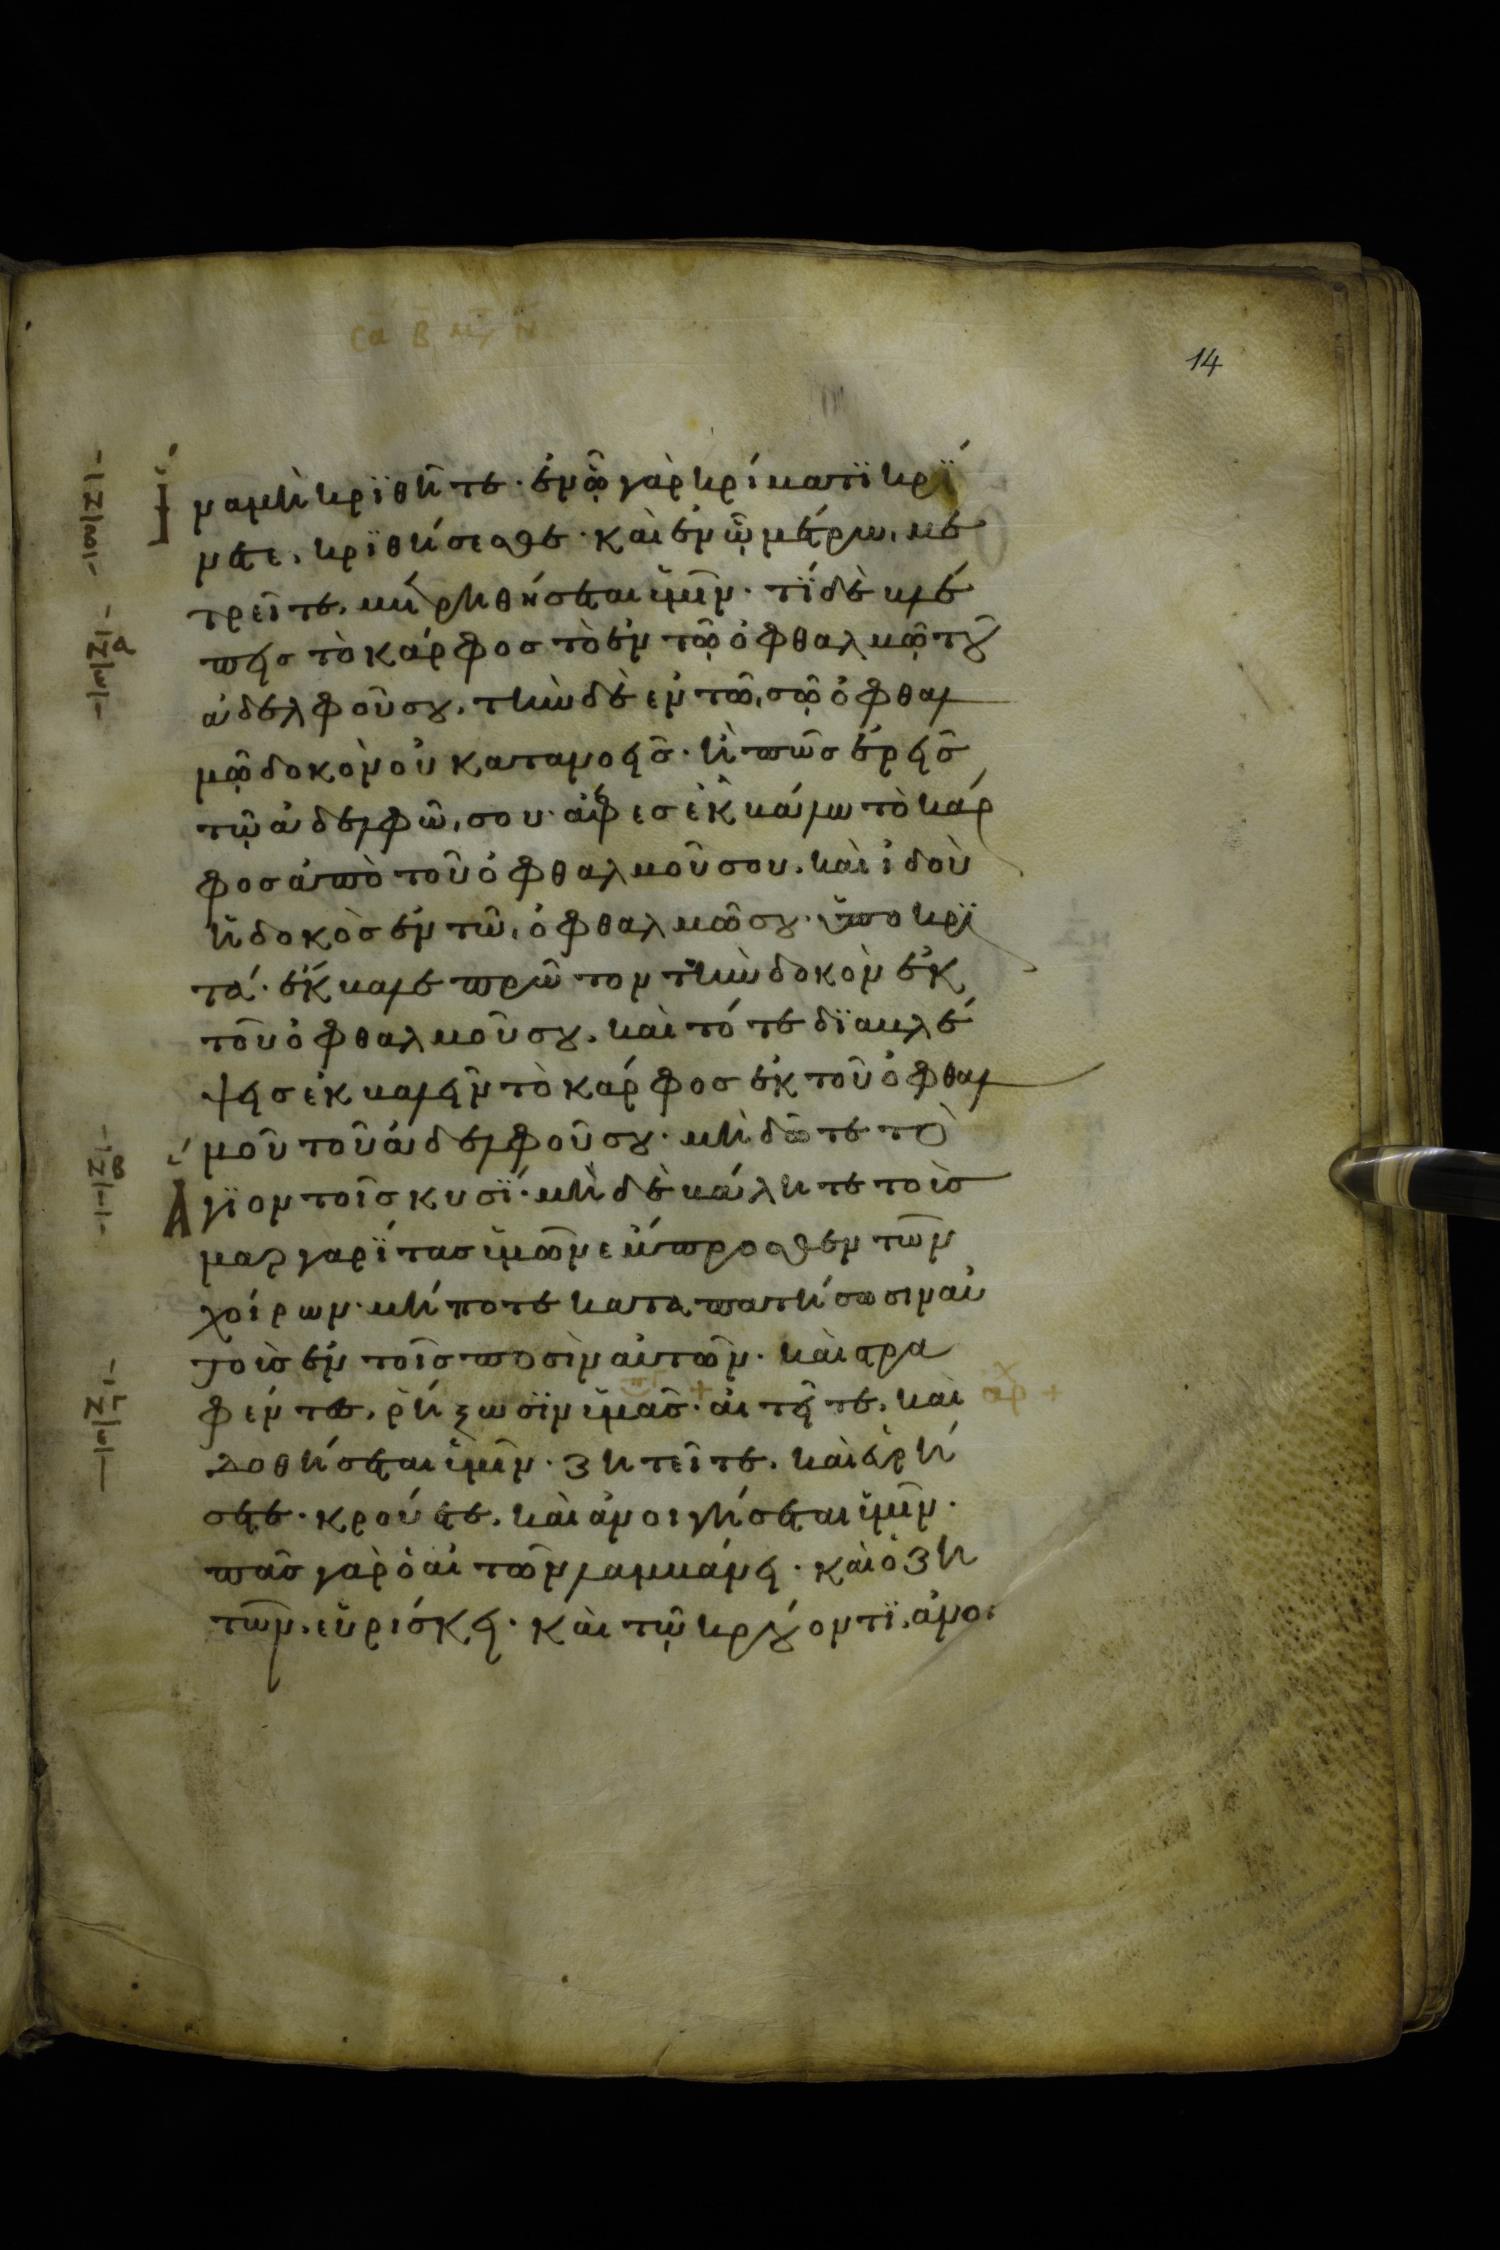 14
Ἵνα μὴ κρϊθῆτε· ἐν ᾧ γὰρ κρίματϊ κρΐ
νετε, κρϊθήσεσθε· καὶ ἐν ᾧ μέτρω, με
τρεῖτε, μετρηθήσεται ὑμῖν· τΐ δὲ βλέ
πεις τὸ κάρφος τὸ ἐν τῷ ὀφθαλμῷ τοῦ
ἀδελφοῦ σου, τὴν δὲ ἐν τῶ, σῷ ὀφθαλ
μῷ δοκὸν οὐ κατανοεῖς· ἢ πῶς ἐρεῖς
τῷ ἀδελφῶ, σου· ἄφες ἐκβάλω τὸ κάρ
φος ἀπὸ τοῦ ὀφθαλμοῦ σου, καὶ ἰδοὺ
ἡ δοκὸς ἐν τῶ, ὀφθαλμῶ σου· ὑποκρϊ
τά· ἔκβαλε πρῶτον τὴν δοκὸν ἐκ
τοῦ ὀφθαλμοῦ σου, καὶ τότε δϊαβλέ
ψεις ἐκβαλεῖν τὸ κάρφος ἐκ τοῦ ὀφθαλ
μοῦ τοῦ ἀδελφοῦ σου· μὴ δῶτε τὸ
Ἅγϊον τοῖς κυσΐ· μὴδὲ βάλητε τοὺς
μαργαρΐτας ὑμῶν ἔμπροσθεν τῶν
χοίρων· μήποτε καταπατήσωσιν αὐ
τοὺς ἐν τοῖς ποσὶν αὐτῶν· καὶ στρα
φέντες, ῥήξωσϊν ὑμᾶς· αἰτεῖτε, καὶ
δοθήσεται ὑμῖν· ζητεῖτε, καὶ εὑρή
σετε· κρούετε, καὶ ἀνοιγήσεται ὑμῖν·
πᾶς γὰρ ὁ αἰτῶν λαμβάνει· καὶ ὁ ζη
τῶν, εὑρίσκει· καὶ τῷ κρούοντϊ, ἀνοι